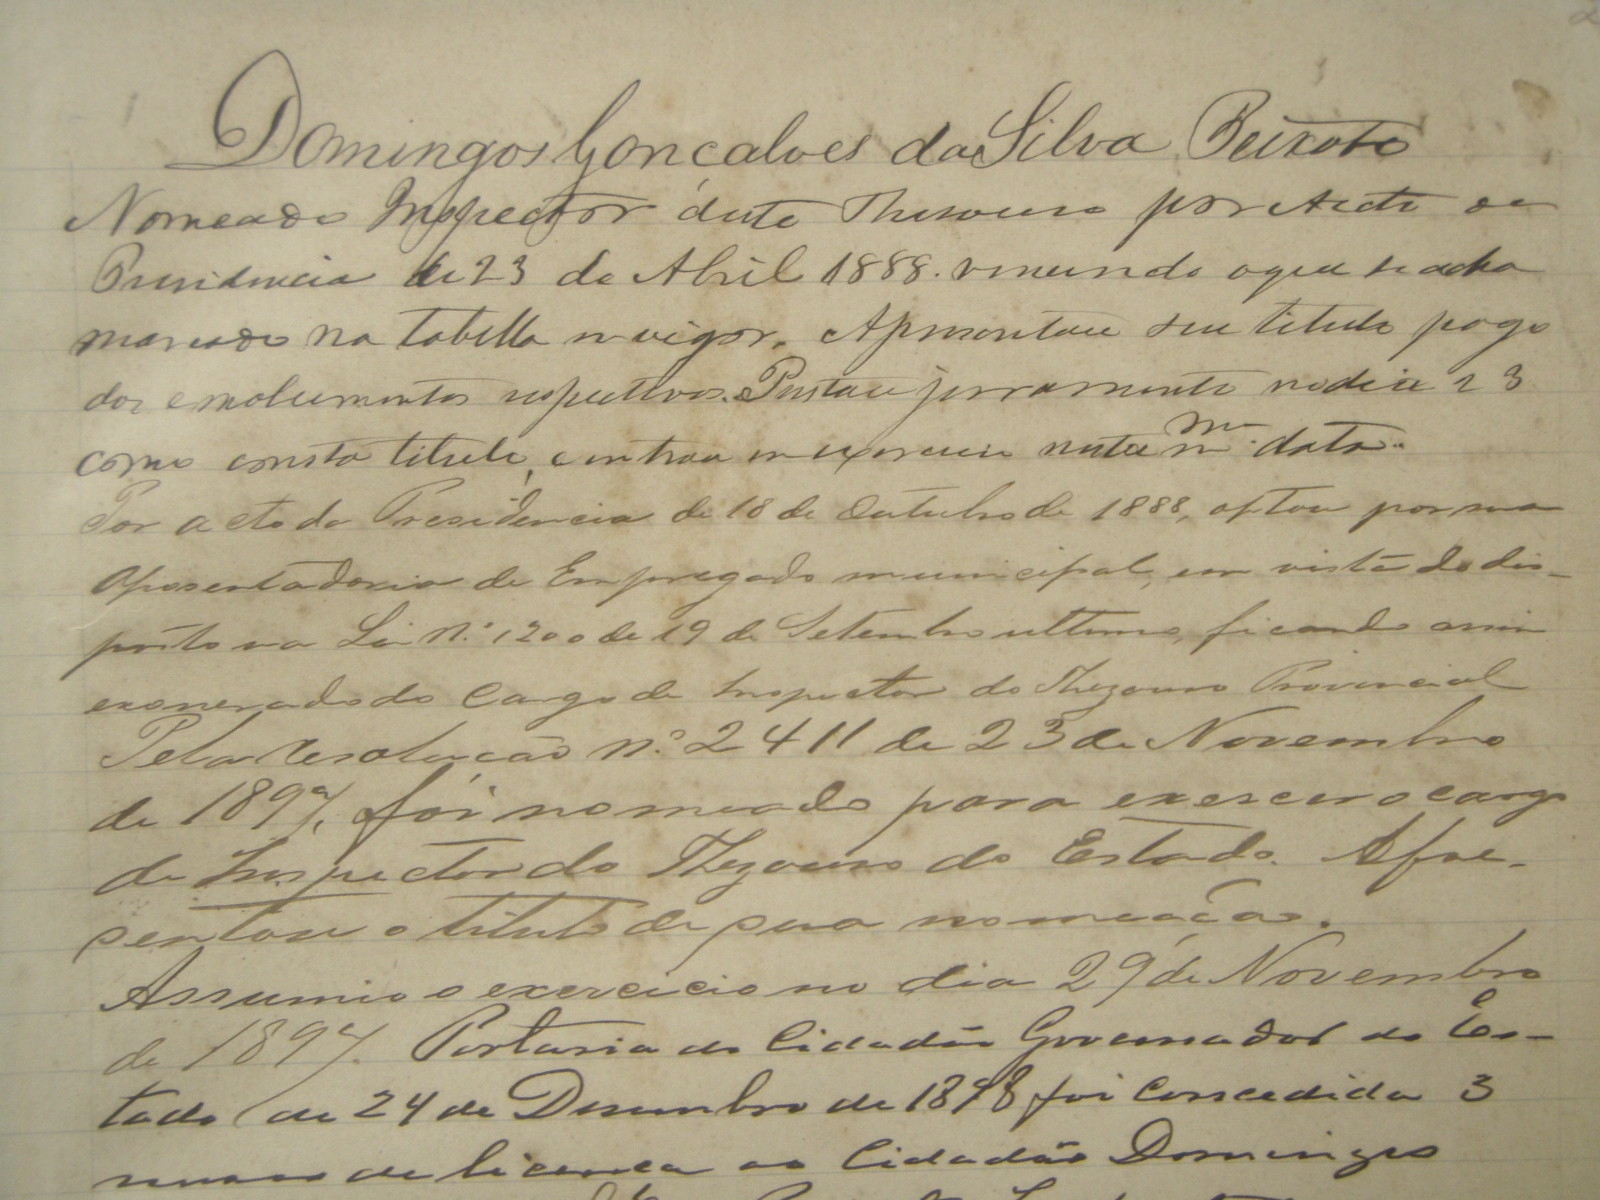 Domingos Gonçalves da Silva Peixoto
Nomeado Inspector d'este Thesouro por Acto da
Presidencia de 23 de Abril 1888. vencendo o que se acha
marcado na tabella em vigor. Apresentou seu titulo pago
dos emolumentos respectivos. Prestou juramento no dia 23
como consta titulo, e entrou em exercicio nesta m.ma data.
Por acto da Presidencia de 18 de Outubro de 1888, optou por sua
Aposentadoria de Empregado municipal, em vista do dis-
posto na Lei N.º 1200 de 19 de Setembro ultimo, ficando assim
exonerado do Cargo de Inspector do Thezouro Provincial
Pela Resolução n.º 2411 de 23 de Novembro
de 1897, foi nomeado para exescer o cargo
de Inspector do Thezouro do Estado. Apre-
sentou o titulo de sua nomeação.
Assumio o exercicio no dia 29 de Novembro
de 1897. Portaria do Cidadão Governador do Es-
tado de 24 de Desembro de 1898 foi Concedida 3
meses de licença ao Cidadão Domingos